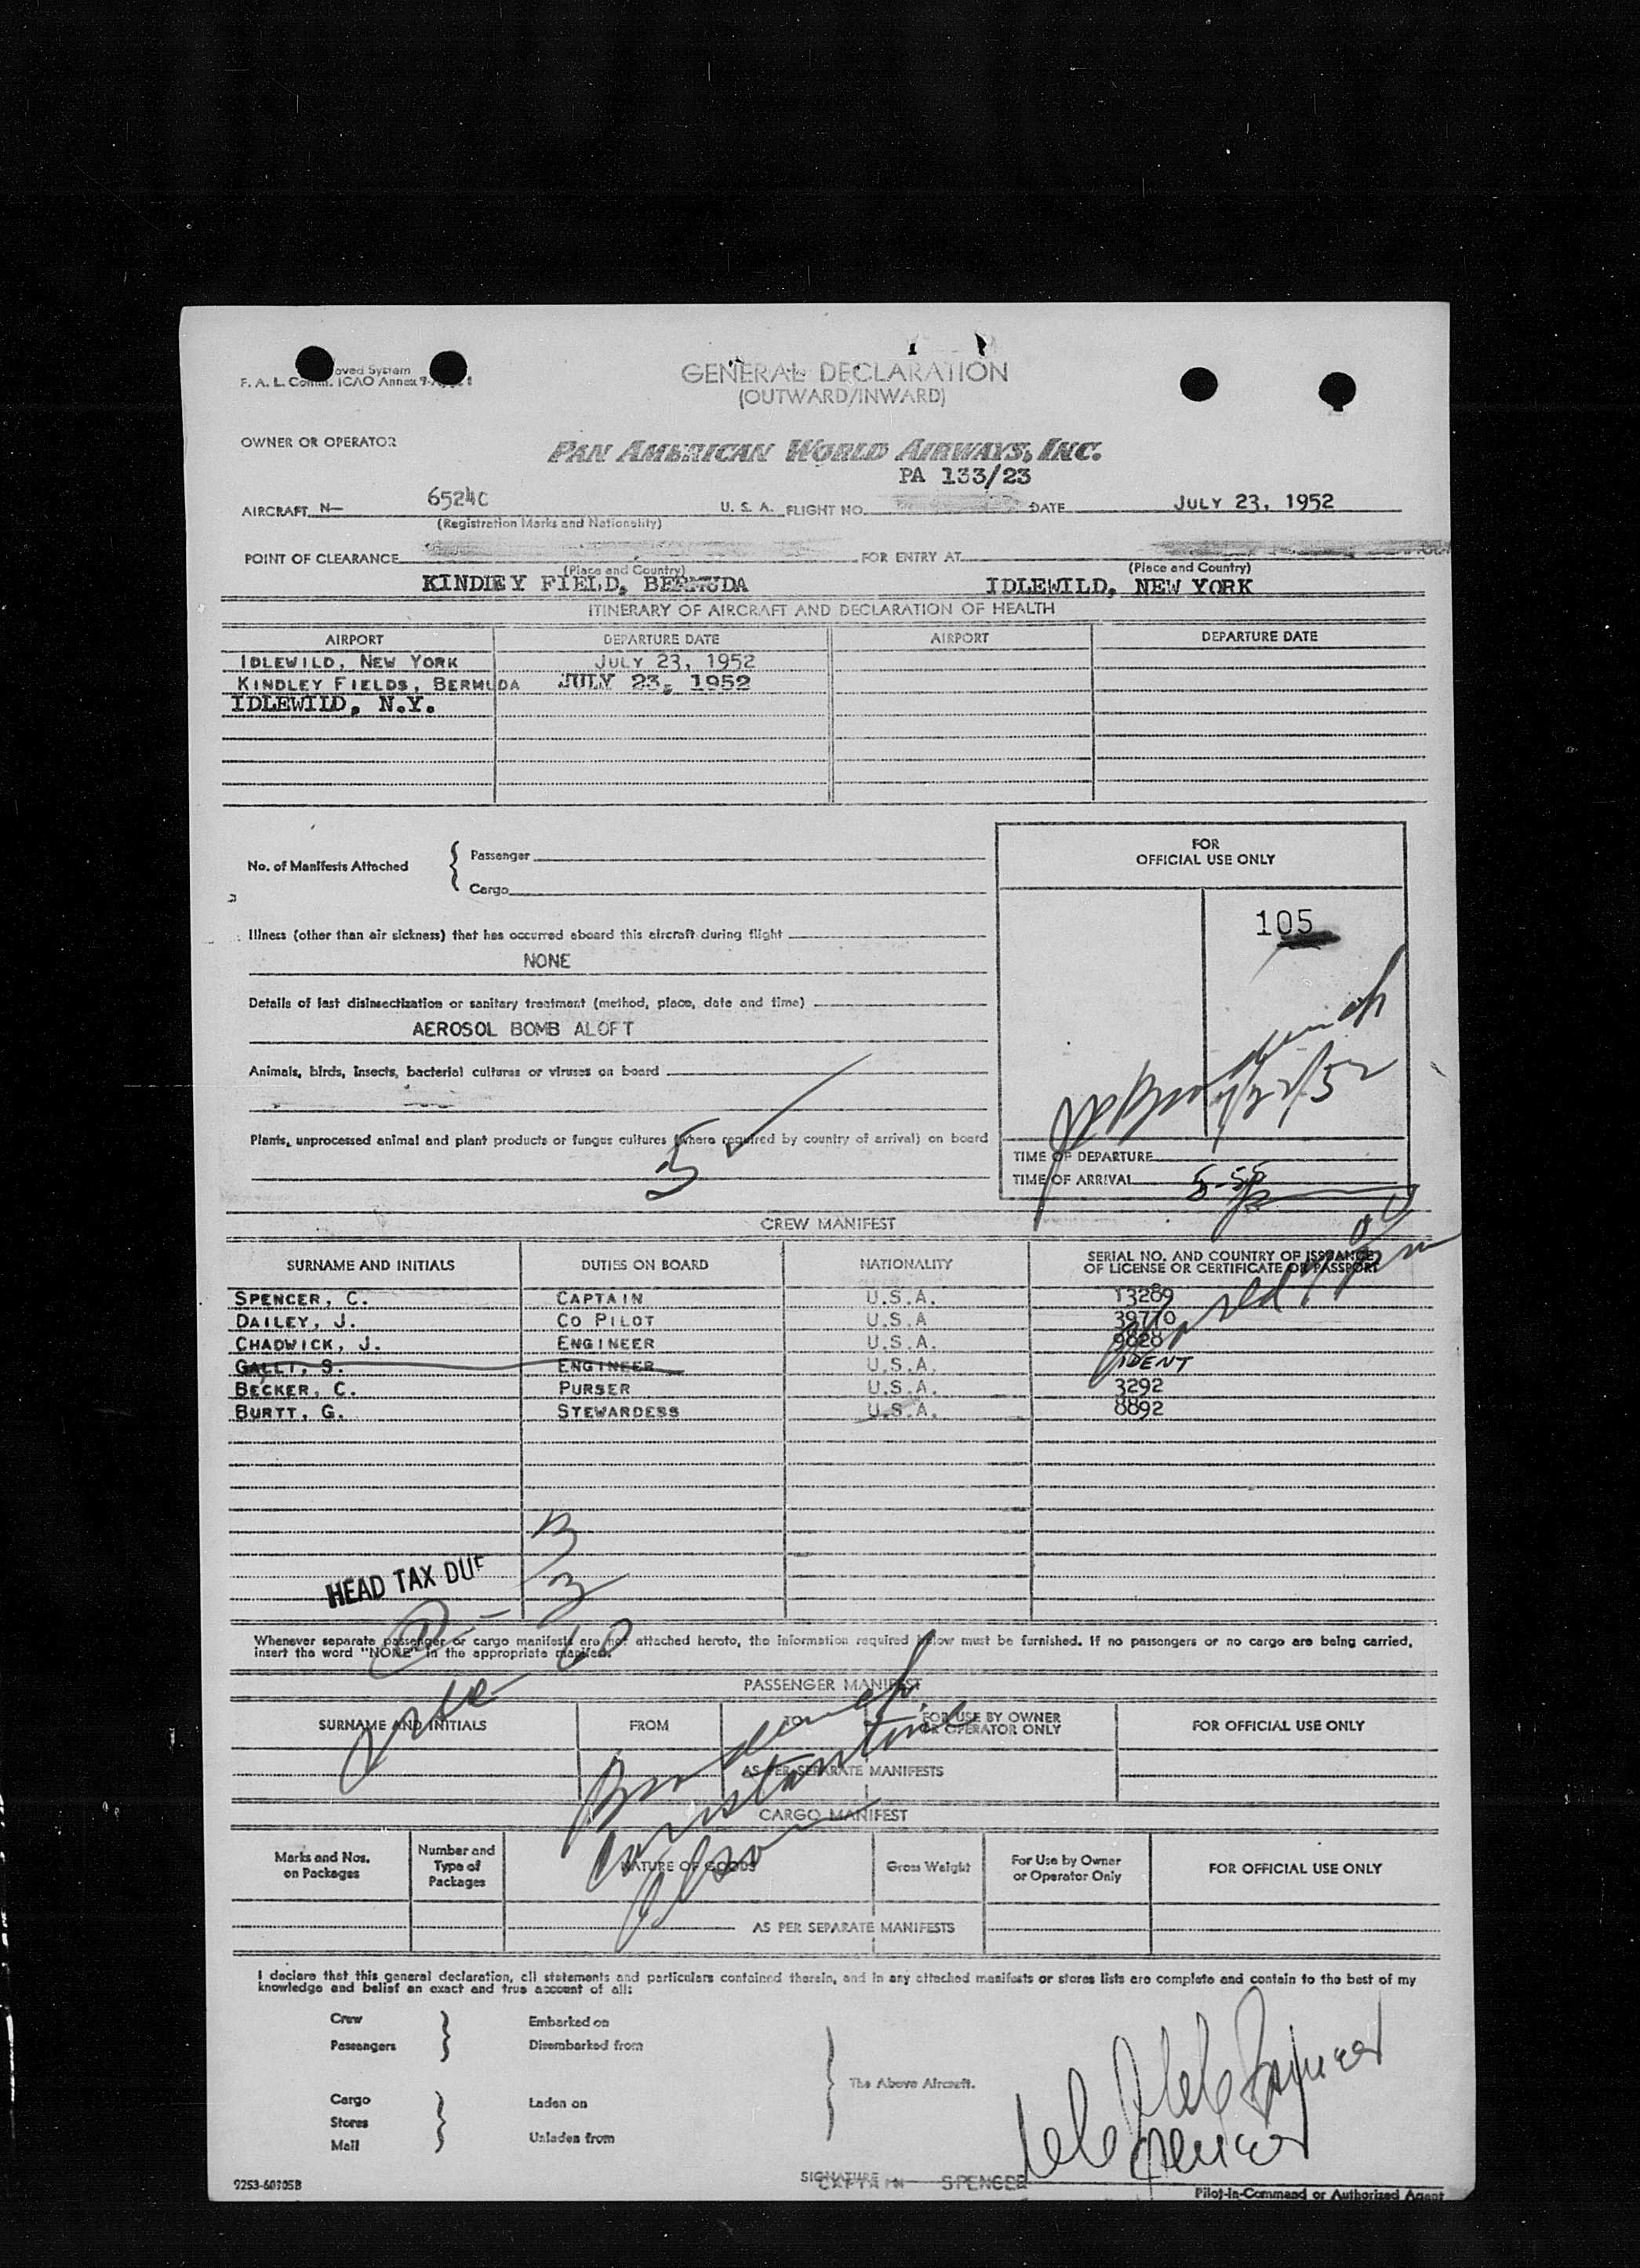 oved System
F. A. L. Comm. ICAO Annex 9-
GENERAL DECLARATION
(OUTWARD/INWARD)
OWNER OR OPERATOR PAN AMERICAN WORLD AIRWAYS, INC.
PA 133/23
AIRCRAFT N— 6524C U. S. A. FLIGHT NO. DATE JULY 23, 1952
(Registration Marks and Nationality)
POINT OF CLEARANCE FOR ENTRY AT
(Place and Country) (Place and Country)
KINDLEY FIELD, BERMUDA IDLEWILD, NEW YORK
ITINERARY OF AIRCRAFT AND DECLARATION OF HEALTH
AIRPORT DEPARTURE DATE AIRPORT DEPARTURE DATE
IDLEWILD, NEW YORK JULY 23, 1952
KINDLEY FIELDS, BERMUDA JULY 23, 1952
IDLEWILD, N.Y.
FOR
OFFICIAL USE ONLY
No. of Manifests Attached
Passenger
Cargo
105
Illness (other than air sickness) that has occurred aboard this aircraft during flight
NONE
Details of last disinsectization or sanitary treatment (method, place, date and time)
AEROSOL BOMB ALOFT
Animals, birds, insects, bacterial cultures or viruses on board
Plants, unprocessed animal and plant products or fungus cultures (where required by country of arrival) on board
5
TIME OF DEPARTURE
TIME OF ARRIVAL 5-55
CREW MANIFEST
SURNAME AND INITIALS DUTIES ON BOARD NATIONALITY SERIAL NO. AND COUNTRY OF ISSUANCE
OF LICENSE OR CERTIFICATE OR PASSPORT
SPENCER, C. CAPTAIN U.S.A. 13289
DAILEY, J. CO PILOT U.S.A 39770
CHADWICK, J. ENGINEER U.S.A. 9828
GALLI, S. ENGINEER U.S.A. IDENT
BECKER, C. PURSER U.S.A. 3292
BURTT, G. STEWARDESS U.S.A. 8892
HEAD TAX DUE
Whenever separate passenger or cargo manifests are not attached hereto, the information required below must be furnished. If no passengers or no cargo are being carried,
insert the word "NONE" in the appropriate manifest.
PASSENGER MANIFEST
SURNAME AND INITIALS FROM TO FOR USE BY OWNER
OR OPERATOR ONLY FOR OFFICIAL USE ONLY
AS PER SEPARATE MANIFESTS
Constantine
CARGO MANIFEST
Marks and Nos.
on Packages
Number and
Type of
Packages
NATURE OF GOODS
Gross Weight
For Use by Owner
or Operator Only
FOR OFFICIAL USE ONLY
AS PER SEPARATE MANIFESTS
I declare that this general declaration, all statements and particulars contained therein, and in any attached manifests or stores lists are complete and contain to the best of my
knowledge and belief an exact and true account of all:
Crew Embarked on
Passengers Disembarked from
The Above Aircraft.
Cargo Laden on
Stores
Mail Unladen from
Spencer
Spencer
9253-60105B
SIGNATURE CAPTAIN SPENCER
Pilot-in-Command or Authorized Agent